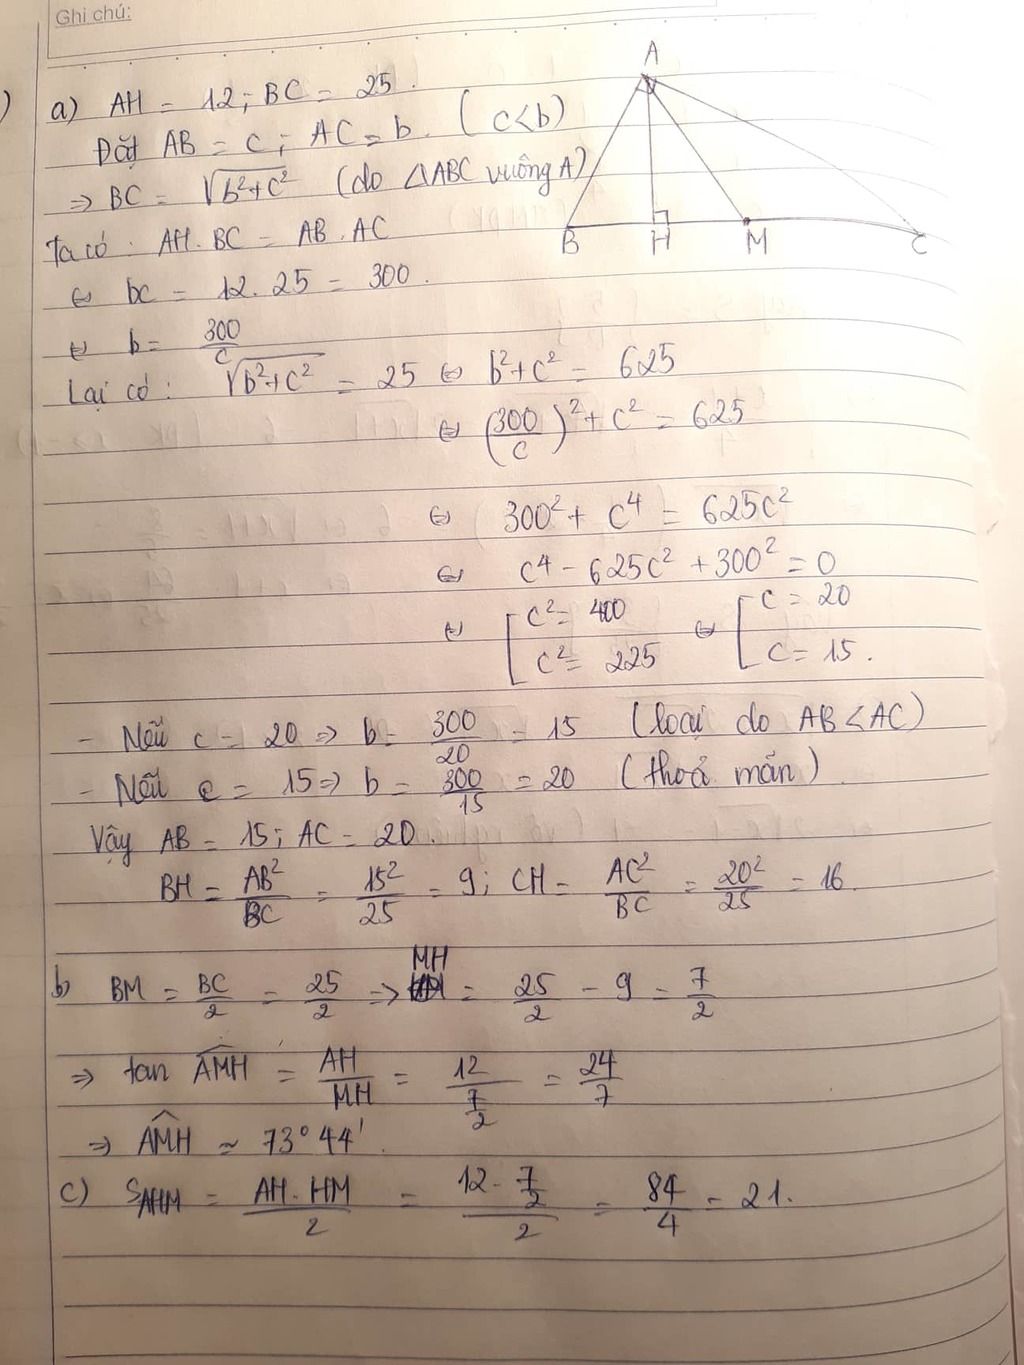 Ghi chú:
a) AH = 12; BC = 25.
Đặt AB = c; AC = b. (c<b)
=> BC = √(b²+c²) (do △ABC vuông A)
Ta có: AH.BC = AB.AC
<=> bc = 12.25 = 300.
<=> b = 300/c
Lại có: √(b²+c²) = 25 <=> b²+c² = 625
<=> (300/c)² + c² = 625
<=> 300² + c⁴ = 625c²
<=> c⁴ - 625c² + 300² = 0
<=> [ c² = 400 <=> [ c = 20
c² = 225 c = 15.
- Nếu c = 20 => b = 300/20 = 15 (loại do AB<AC)
- Nếu c = 15 => b = 300/15 = 20 (thoả mãn)
Vậy AB = 15; AC = 20.
BH = AB²/BC = 15²/25 = 9; CH = AC²/BC = 20²/25 = 16.
b) BM = BC/2 = 25/2 => MH = 25/2 - 9 = 7/2
=> tan AMH = AH/MH = 12/(7/2) = 24/7
=> AMH ≈ 73°44'.
c) S_AHM = AH.HM/2 = (12.7/2)/2 = 84/4 = 21.
A
B H M C